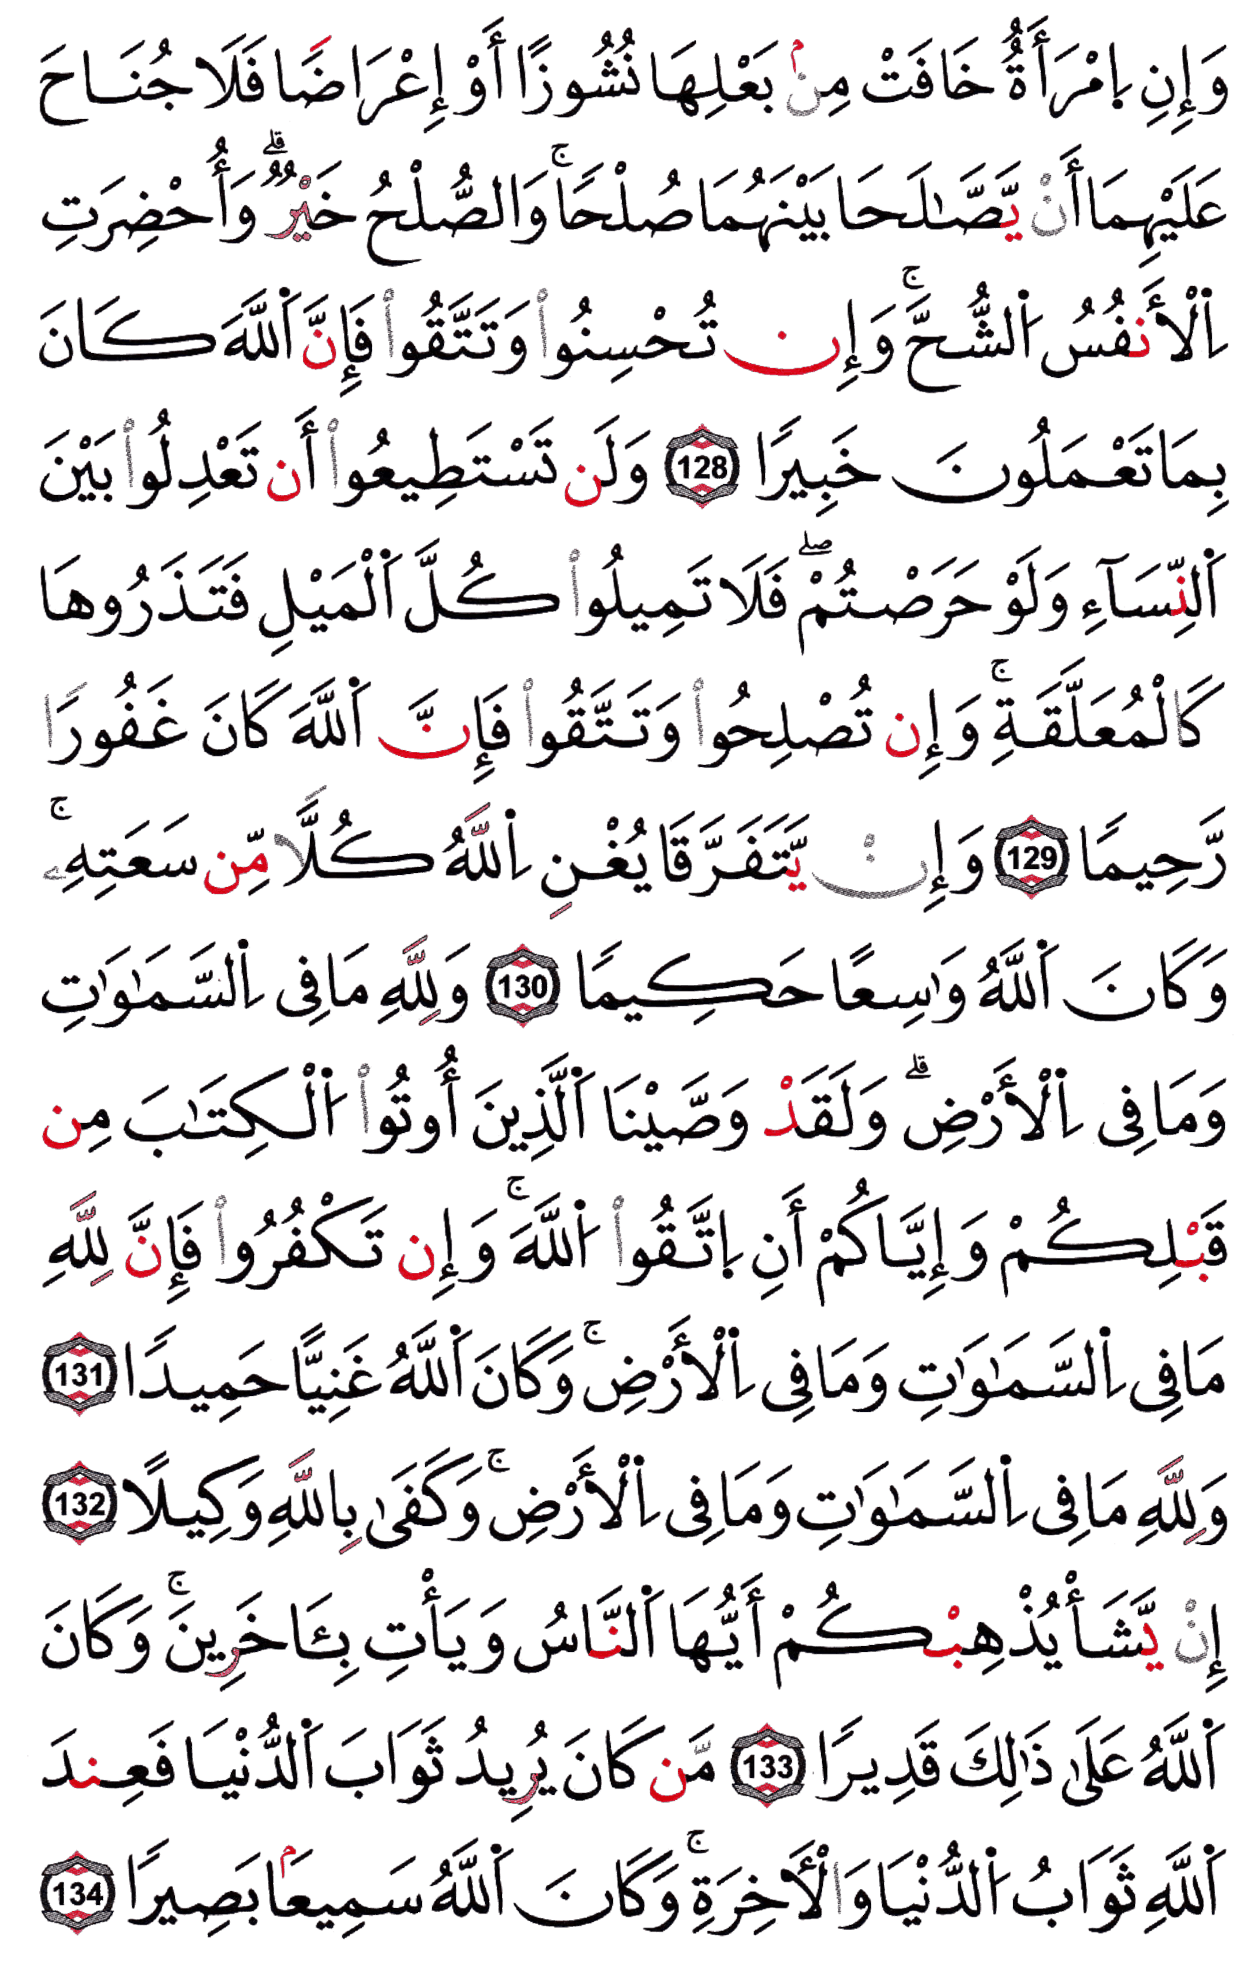 وَإِنِ اِمْرَأَةٌ خَافَتْ مِنۢ بَعْلِهَا نُشُوزًا أَوْ إِعْرَاضًا فَلَا جُنَاحَ
عَلَيْهِمَا أَنْ يَّصَّٰلَحَا بَيْنَهُمَا صُلْحًاۚ وَالصُّلْحُ خَيْرٌۗ وَأُحْضِرَتِ
اِ۬لْأَنفُسُ اُ۬لشُّحَّۚ وَإِن تُحْسِنُوا۟ وَتَتَّقُوا۟ فَإِنَّ اَ۬للَّهَ كَانَ
بِمَا تَعْمَلُونَ خَبِيرًا 128 وَلَن تَسْتَطِيعُوا۟ أَن تَعْدِلُوا۟ بَيْنَ
اَ۬لنِّسَآءِ وَلَوْ حَرَصْتُمْۖ فَلَا تَمِيلُوا۟ كُلَّ اَ۬لْمَيْلِ فَتَذَرُوهَا
كَالْمُعَلَّقَةِۚ وَإِن تُصْلِحُوا۟ وَتَتَّقُوا۟ فَإِنَّ اَ۬للَّهَ كَانَ غَفُورًا
رَّحِيمًا 129 وَإِنْ يَّتَفَرَّقَا يُغْنِ اِ۬للَّهُ كُلًّا مِّن سَعَتِهِۦۚ
وَكَانَ اَ۬للَّهُ وَٰسِعًا حَكِيمًا 130 وَلِلَّهِ مَا فِى اِ۬لسَّمَٰوَٰتِ
وَمَا فِى اِ۬لْأَرْضِۗ وَلَقَدْ وَصَّيْنَا اَ۬لَّذِينَ أُوتُوا۟ اُ۬لْكِتَٰبَ مِن
قَبْلِكُمْ وَإِيَّاكُمْ أَنِ اِتَّقُوا۟ اُ۬للَّهَۚ وَإِن تَكْفُرُوا۟ فَإِنَّ لِلَّهِ
مَا فِى اِ۬لسَّمَٰوَٰتِ وَمَا فِى اِ۬لْأَرْضِۚ وَكَانَ اَ۬للَّهُ غَنِيًّا حَمِيدًا 131
وَلِلَّهِ مَا فِى اِ۬لسَّمَٰوَٰتِ وَمَا فِى اِ۬لْأَرْضِۚ وَكَفَىٰ بِاللَّهِ وَكِيلًا 132
إِنْ يَّشَأْ يُذْهِبْكُمْ أَيُّهَا اَ۬لنَّاسُ وَيَأْتِ بِـَٔاخَرِينَۚ وَكَانَ
اَ۬للَّهُ عَلَىٰ ذَٰلِكَ قَدِيرًا 133 مَّن كَانَ يُرِيدُ ثَوَابَ اَ۬لدُّنْيَا فَعِندَ
اَ۬للَّهِ ثَوَابُ اُ۬لدُّنْيَا وَالْأَخِرَةِۚ وَكَانَ اَ۬للَّهُ سَمِيعَۢا بَصِيرًا 134